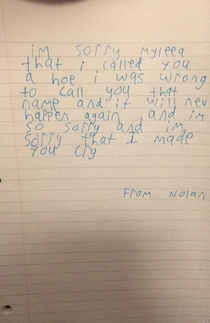 im sorry myleea
that i called you
a hoe i was wrong
to call you that
name and it will nev
happen again and im
so sorry and im
sorry that I made
you cry
From Nolan